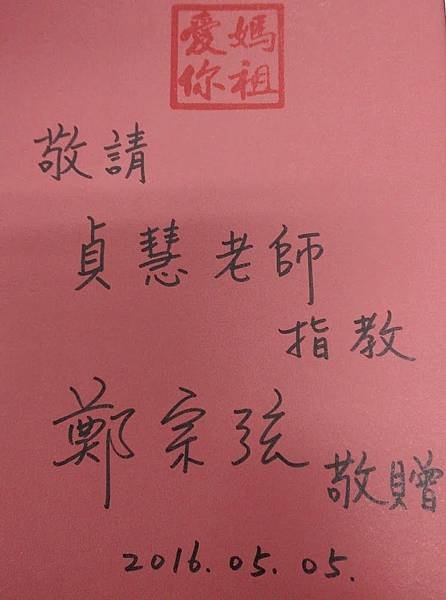 媽祖
愛你
敬請
貞慧老師
指教
鄭宗弦
敬贈
2016.05.05.